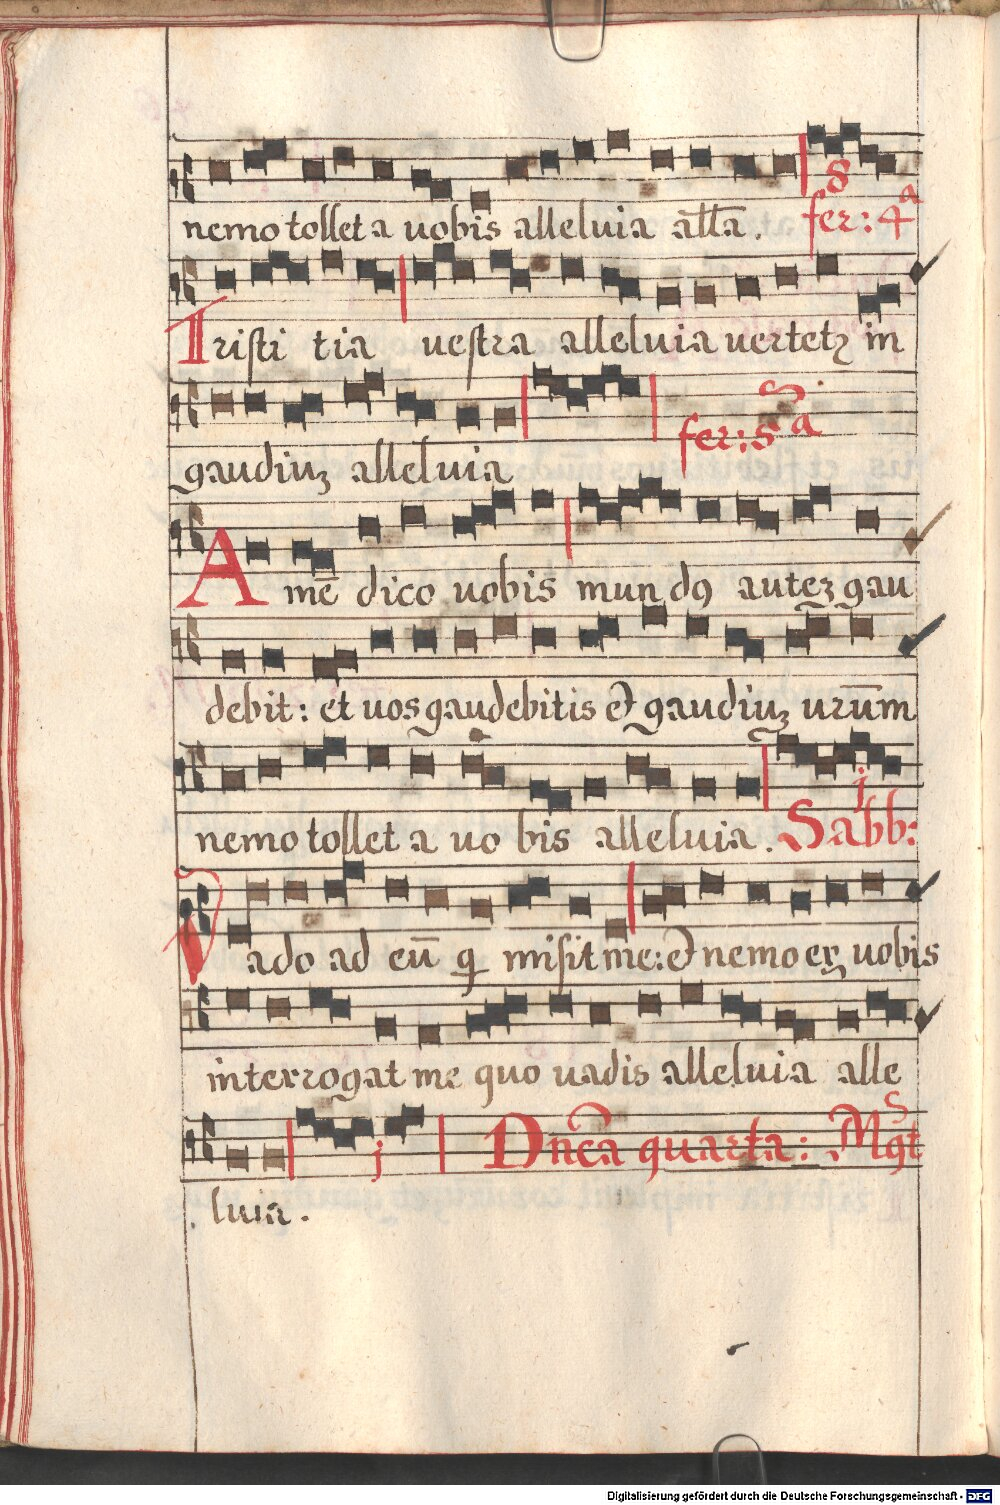 nemo tollet a uobis alleluia all̄a. 8 fer: 4ᵃ
Tristi tia uestra alleluia uertetꝛ in
gaudiuꝫ alleluia fer: 5ᵃ
Amē dico uobis mundꝯ auteꝫ gau
debit: et uos gaudebitis et gaudiuꝫ urūm
nemo tollet a uobis alleluia. j Sabb:
Vado ad eū q misit me: et nemo ex uobis
interrogat me quo uadis alleluia alle
luia. j Dn̄ca quarta: Mgt
Digitalisierung gefördert durch die Deutsche Forschungsgemeinschaft - DFG